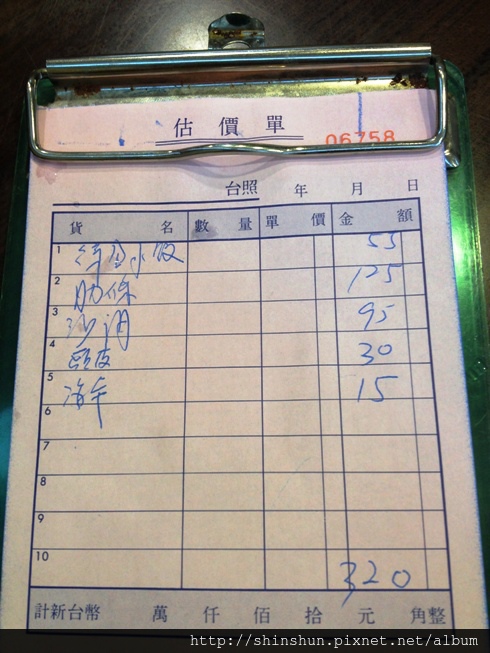 估價單
06758
台照 年 月 日
貨名 數量 單價 金額
1 綜合水餃 55
2 肋條 125
3 95
4 頭皮 30
5 海帶 15
6
7
8
9
10 320
計新台幣 萬 仟 佰 拾 元 角整
http://shinshun.pixnet.net/album